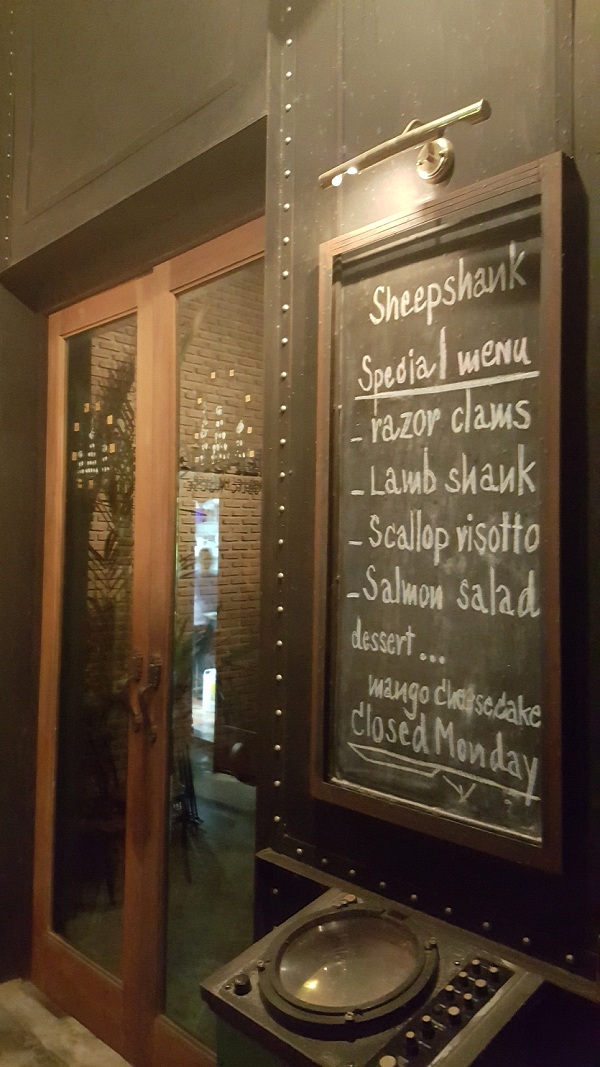 Sheepshank
Special menu
- razor clams
- Lamb shank
- Scallop risotto
- Salmon salad
dessert ...
mango cheesecake
Closed Monday